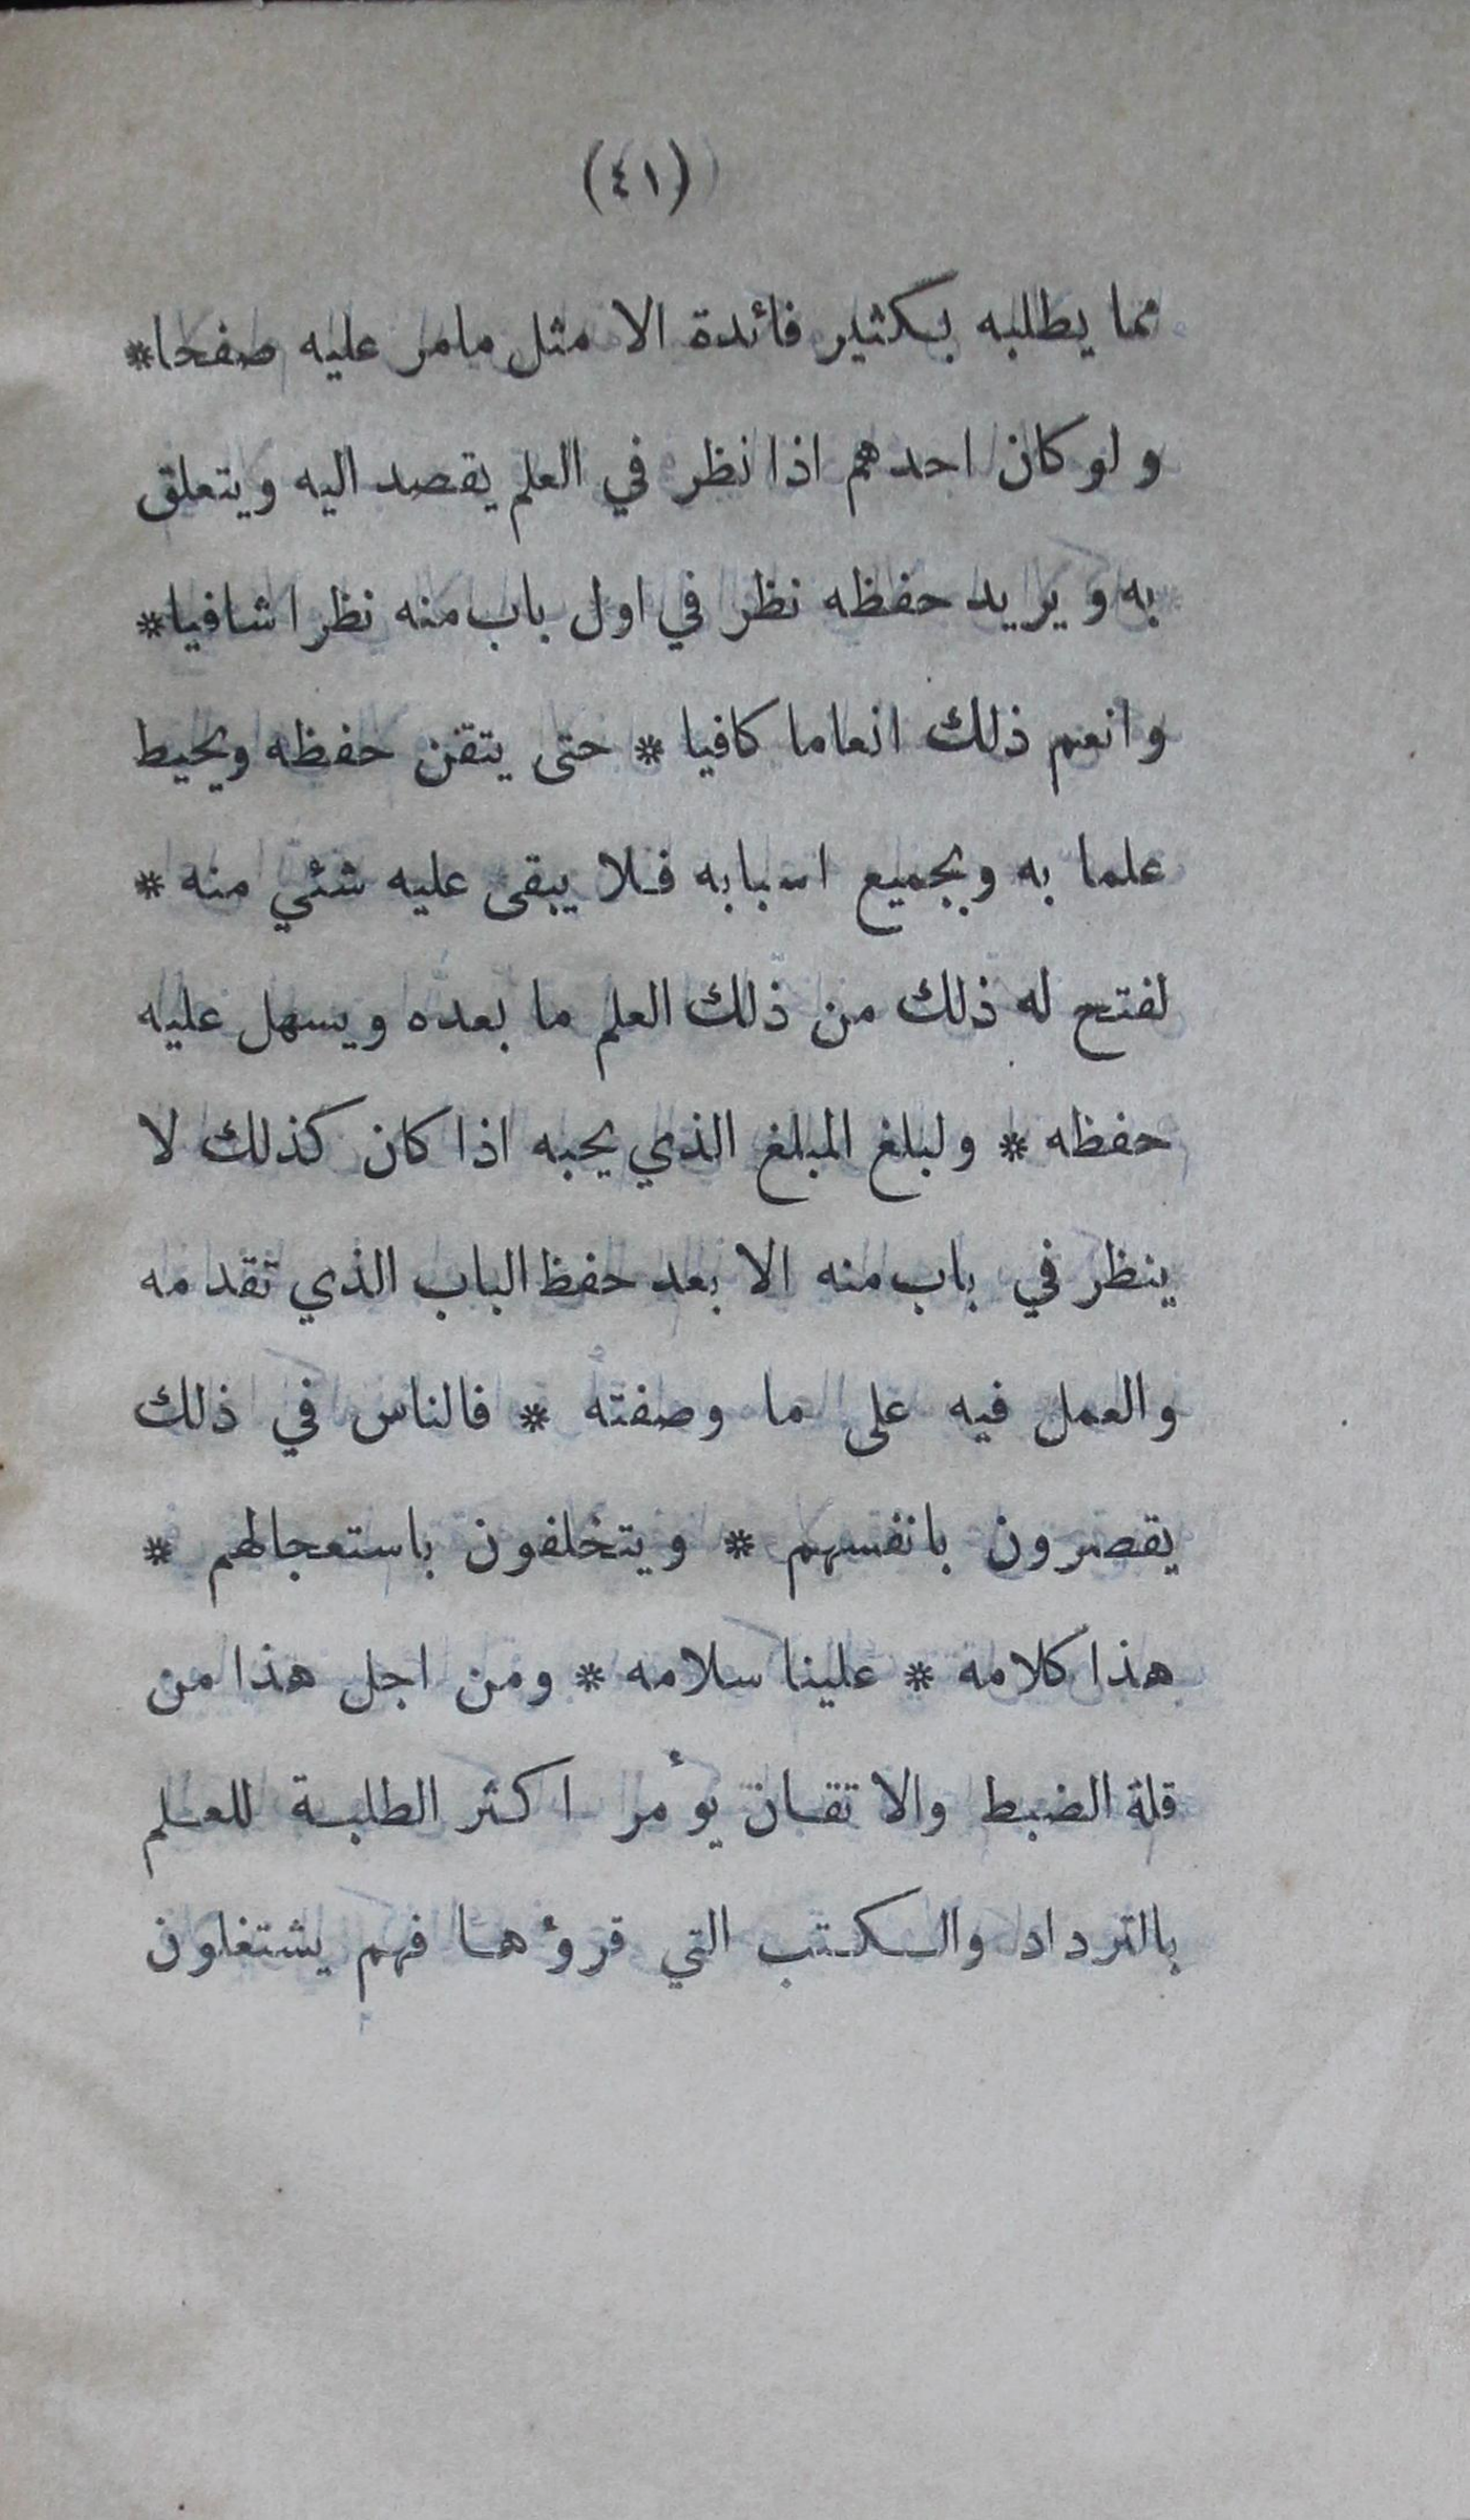 (٤١)
مما يطلبه بكثير فائدة الا مثل مامر عليه صفحا*
ولو كان احدهم اذا نظر في العلم يقصد اليه ويتعلق
به ويريد حفظه نظر في اول باب منه نظرا شافيا*
وانعم ذلك انعاما كافيا * حتى يتقن حفظه ويحيط
علما به وبجميع اسبابه فلا يبقى عليه شئي منه *
لفتح له ذلك من ذلك العلم ما بعده ويسهل عليه
حفظه * ولبلغ المبلغ الذي يحبه اذا كان كذلك لا
ينظر في باب منه الا بعد حفظ الباب الذي تقدمه
والعمل فيه على ما وصفته * فالناس في ذلك
يقصرون بانفسهم * ويتخلفون باستعجالهم *
هذا كلامه * علينا سلامه * ومن اجل هذا من
قلة الضبط والاتقان يؤمر اكثر الطلبة للعلم
بالترداد والكتب التي قرؤها فهم يشتغلون